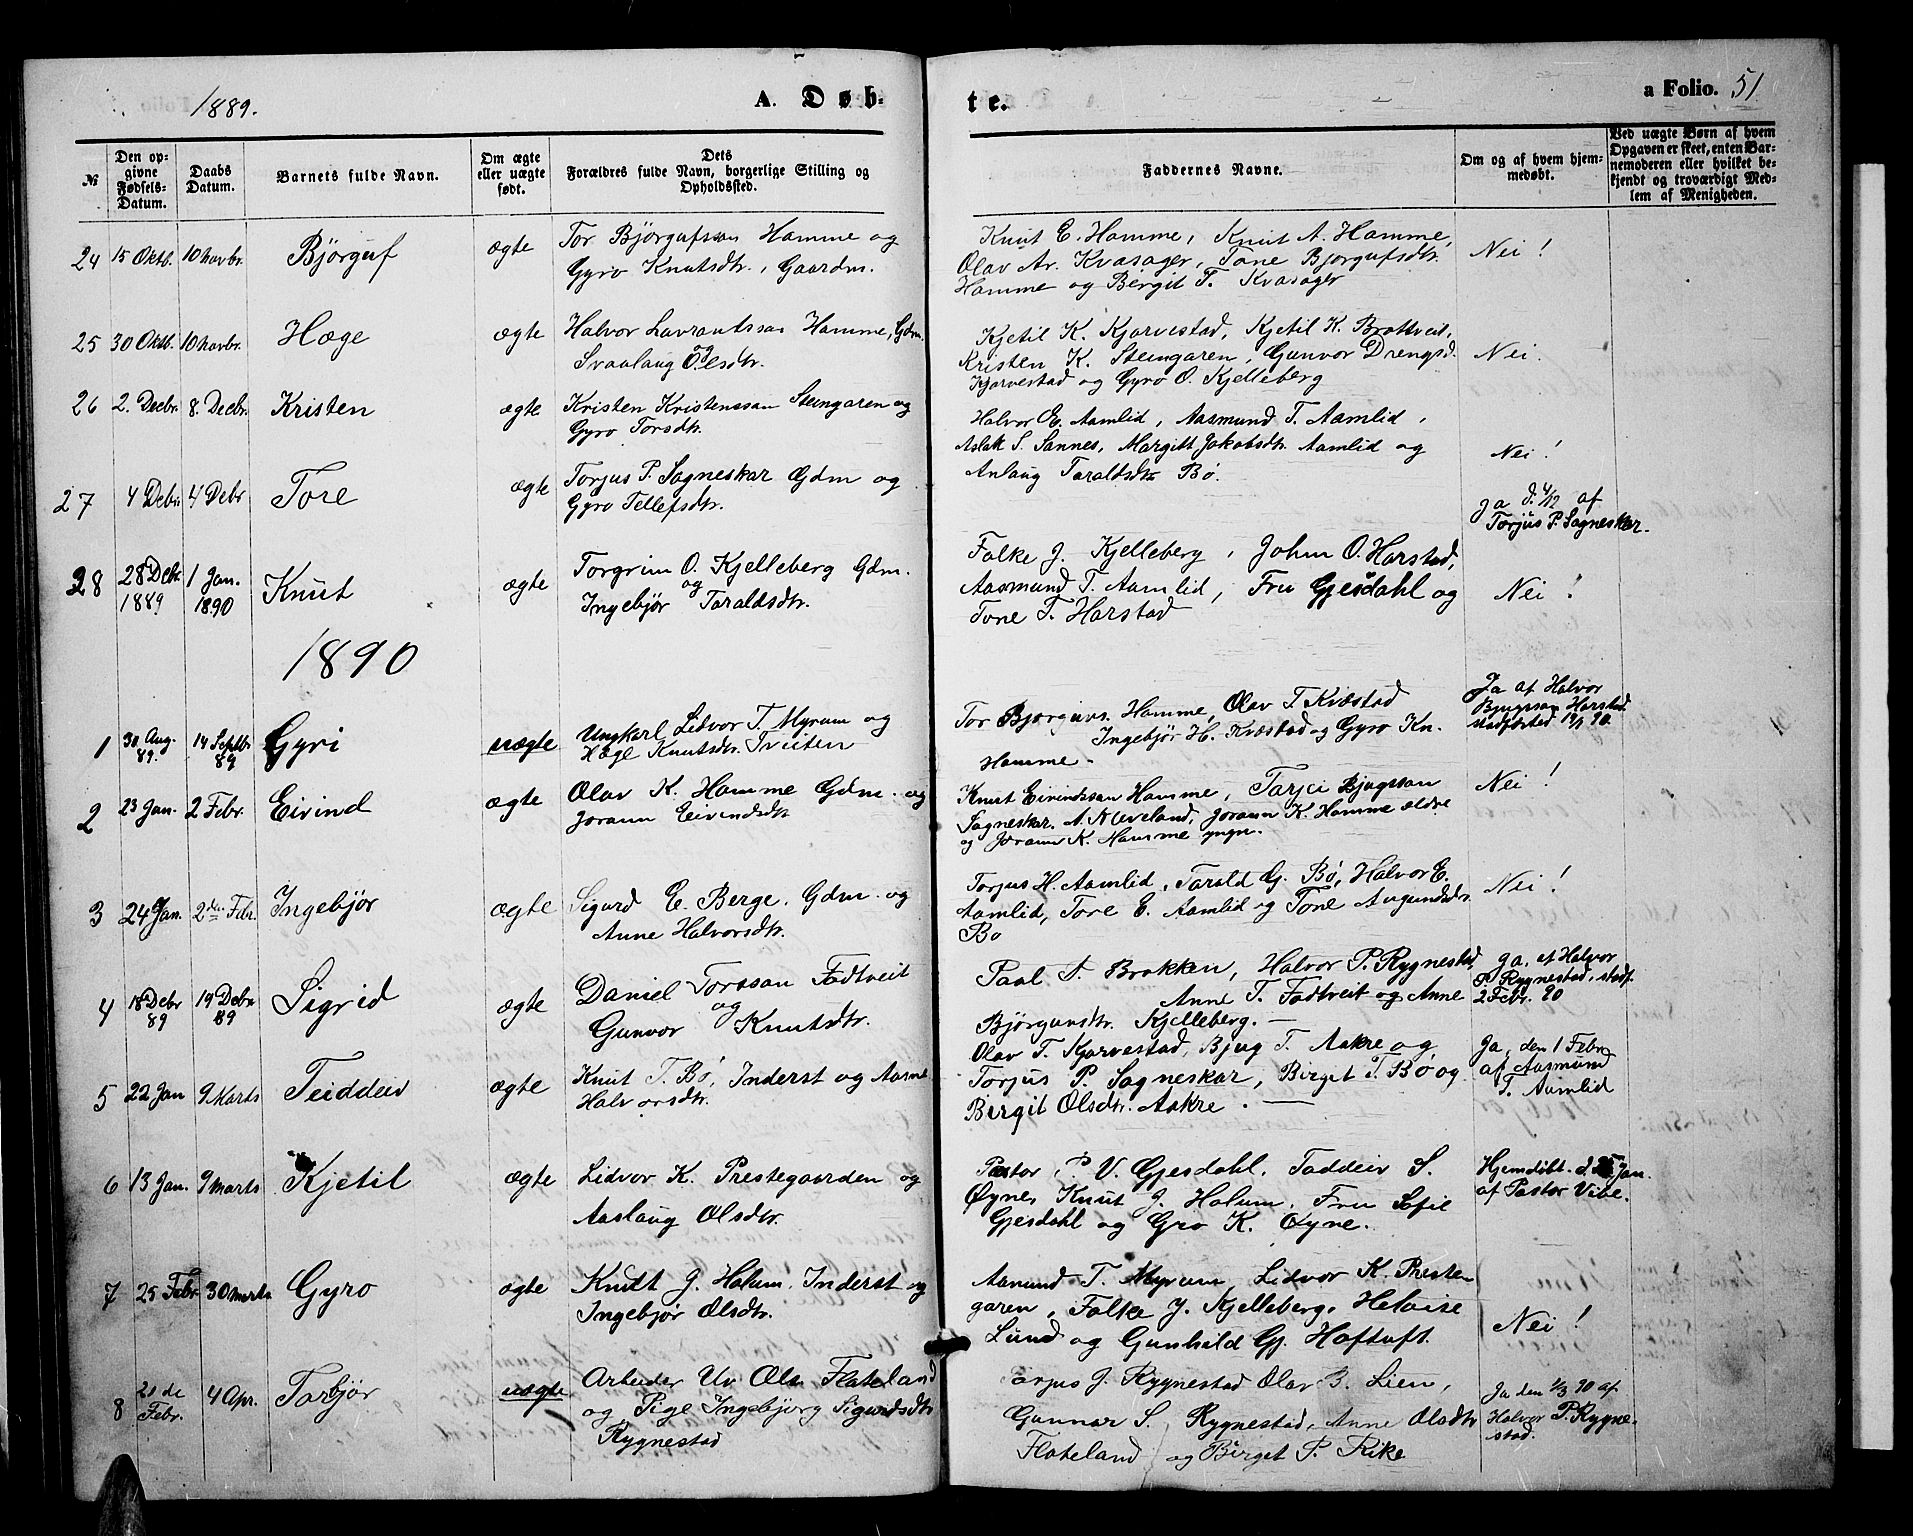 1889.
A. Døb-
te.
a Folio. 51
№
Den op-
givne
Fødsels-
Datum.
Daabs
Datum.
Barnets fulde Navn.
Om ægte
eller uægte
født.
Dets
Forældres fulde Navn, borgerlige Stilling og
Opholdssted.
Faddernes Navne.
Om og af hvem hjem-
medøbt.
Ved uægte Børn af hvem
Opgaven er skeet, enten Bar-
nemoderen eller hvilket be-
kjendt og troværdigt Med-
lem af Menigheden.
24 15 Oktb. 10 novbr. Bjørguf ægte Tor Bjørgufsson Homme og
Gyro Knutsdtr., Gaardm.
Knut E. Homme, Knut A. Homme,
Olav Ar. Kvasager, Tone Bjørgufsdtr.
Homme og Birgit T. Kvasager
Nei!
25 30 Oktb. 10 novbr. Hæge ægte Halvor Lavrantsson Homme, Gdm.
og
Svaalaug Olesdtr.
Kjetil K. Kjørvestad, Kjetil K. Brottveit,
Kristen K. Steingaren, Gunvor Drengsd.
Kjørvestad og Gyro O. Kjelleberg
Nei.
26 2. Decbr. 8. Decbr. Kristen ægte Kristen Kristensson Steingaren og
Gyro Torsdtr.
Halvor E. Aamlid, Aasmund T. Aamlid,
Aslak S. Sannes, Margitt Jakobsdtr. Aamlid og
Anlaug Taraldsdtr Bø.
Nei!
27 4 Debr. 4 Debr Tore ægte Torjus P. Sagneskar Gdm og
Gyro Tellefsdtr.
Ja d. 4/12 af
Torjus P. Sagneskar.
28 28 Debr. 1889 1 Jan. 1890 Knut ægte Torgrim O. Kjelleberg Gdm.
og
Ingebjør Taraldsdtr.
Folke J. Kjelleberg, John O. Harstad,
Aasmund T. Aamlid, Fru Gjesdahl og
Tone T. Harstad
Nei!
1890
1 30 Aug. 89. 14 Septbr 89 Gyri uægte Ungkarl Lidvor T. Myrum og
Hæge Knutsdtr. Tveiten
Tor Bjørguvs. Homme, Olav T. Kvæstad
Ingebjør H. Kvæstad og Gyro Kn.
Homme.
Ja af Halvor
Bjugsson Harstad
stadfæsted 19/1 90.
2 23 Jan. 2 Febr. Eivind ægte Olav K. Homme Gdm. og
Jorann Eivindsdtr
Knut Eivindsson Homme, Tarjei Bjugsson
Sagneskar. A. Neveland, Jorann K. Homme ældre
og Jorann K. Homme yngr.
Nei!
3 24 Jan. 2den Febr. Ingebjør ægte Sigurd E. Berge, Gdm. og
Anne Halvorsdtr.
Torjus H. Aamlid, Tarald G. Bø, Halvor E.
Aamlid, Tore E. Aamlid og Tone Augundsdtr
Bø
Nei!
4 18 Debr 89 19 Debr 89 Sigrid ægte Daniel Torsson Fodtveit
og
Gunvor Knutsdtr.
Paal T. Brokken, Halvor P. Rygnestad,
Anne T. Fodtveit og Anne
Bjørgunsdtr. Kjelleberg.
Ja, af Halvor
P. Rygnestad, stadf.
2 Febr. 90
5 22 Jan 9 Marts Teiddeiv ægte Knut T. Bø, Inderst og Aasne
Halvorsdtr.
Olav T. Kjørvestad, Bjug T. Aakre og
Torjus P. Sagneskar, Birget T. Bø og
Birgit Olsdtr. Aakre.
Ja, den 1 Febr
af Aasmund
T. Aamlid
6 13 Jan. 9 Marts Kjetil ægte Lidvor K. Prestegaarden og
Aaslaug Olsdtr.
Pastor P. V. Gjesdahl, Taddeiv S.
Øyne, Knut J. Holum, Fru Sofie
Gjesdahl og Gro K. Øyne.
Hjemdøbt d. 25 Jan.
af Pastor Vibe.
7 25 Febr 30 marts Gyro ægte Knudt J. Holum, Inderst og
Ingebjør Olsdtr.
Aamund T. Myrum, Lidvor K. Preste-
garen, Folke J. Kjelleberg, Heloise
Lund og Gunhild Gj. Hoftuft.
Nei!
8 21 de Febr. 4 Apr. Torbjør uægte Arbeider Uv Ols. Flateland
og Pige Ingebjørg Sigurdsdtr
Rygnestad
Torjus J. Rygnestad Olav B. Lien,
Gunnar S. Rygnestad, Anne Olsdtr
Flateland og Birget P. Rike
Ja den 1/3 90 af
Halvor P. Rygne-
stad.